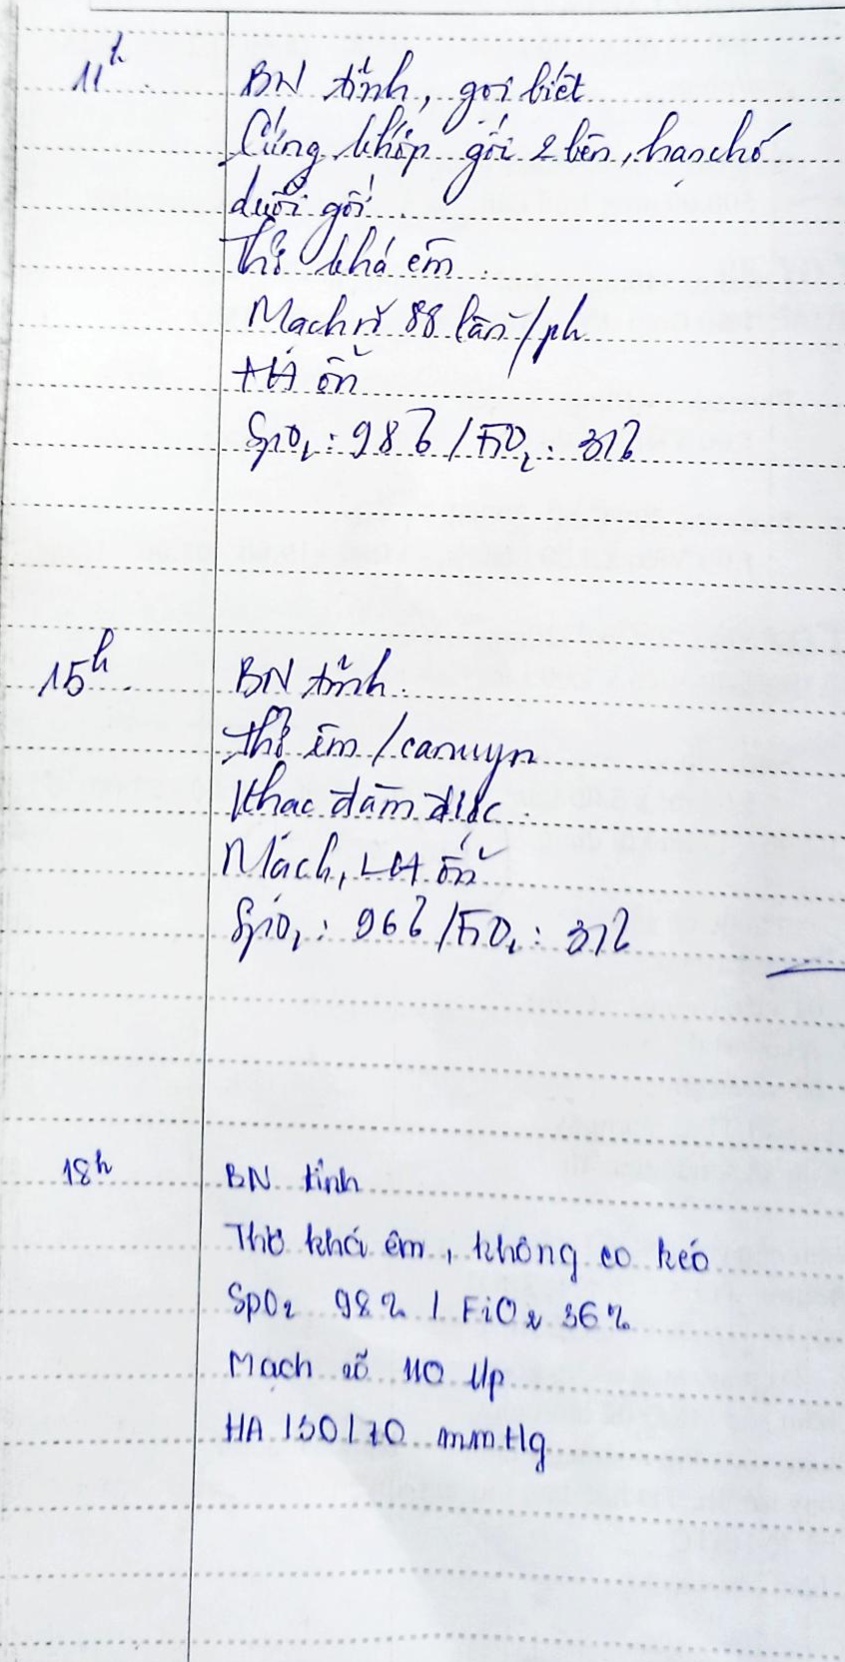 11h
BN tỉnh, gọi biết
Cứng khớp gối 2 bên, hạn chế
duỗi gối.
Thở khá êm.
Mạch rõ 88 lần/ph
HA ổn
SpO2: 98% / FiO2: 31%
15h
BN tỉnh.
Thở êm / canuyn
Khạc đàm đục.
Mạch, HA ổn
SpO2: 96% / FiO2: 31%
18h
BN tỉnh
Thở khá êm, không co kéo
SpO2 98% / FiO2 36%
Mạch rõ 110 l/p
HA 130/70 mmHg